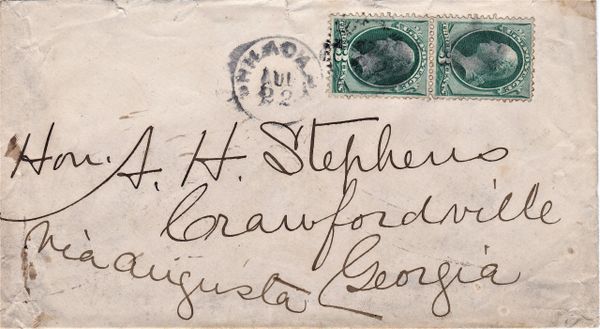 PHILADA.
AUG
22
Hon. A. H. Stephens
Crawfordville
Via Augusta Georgia